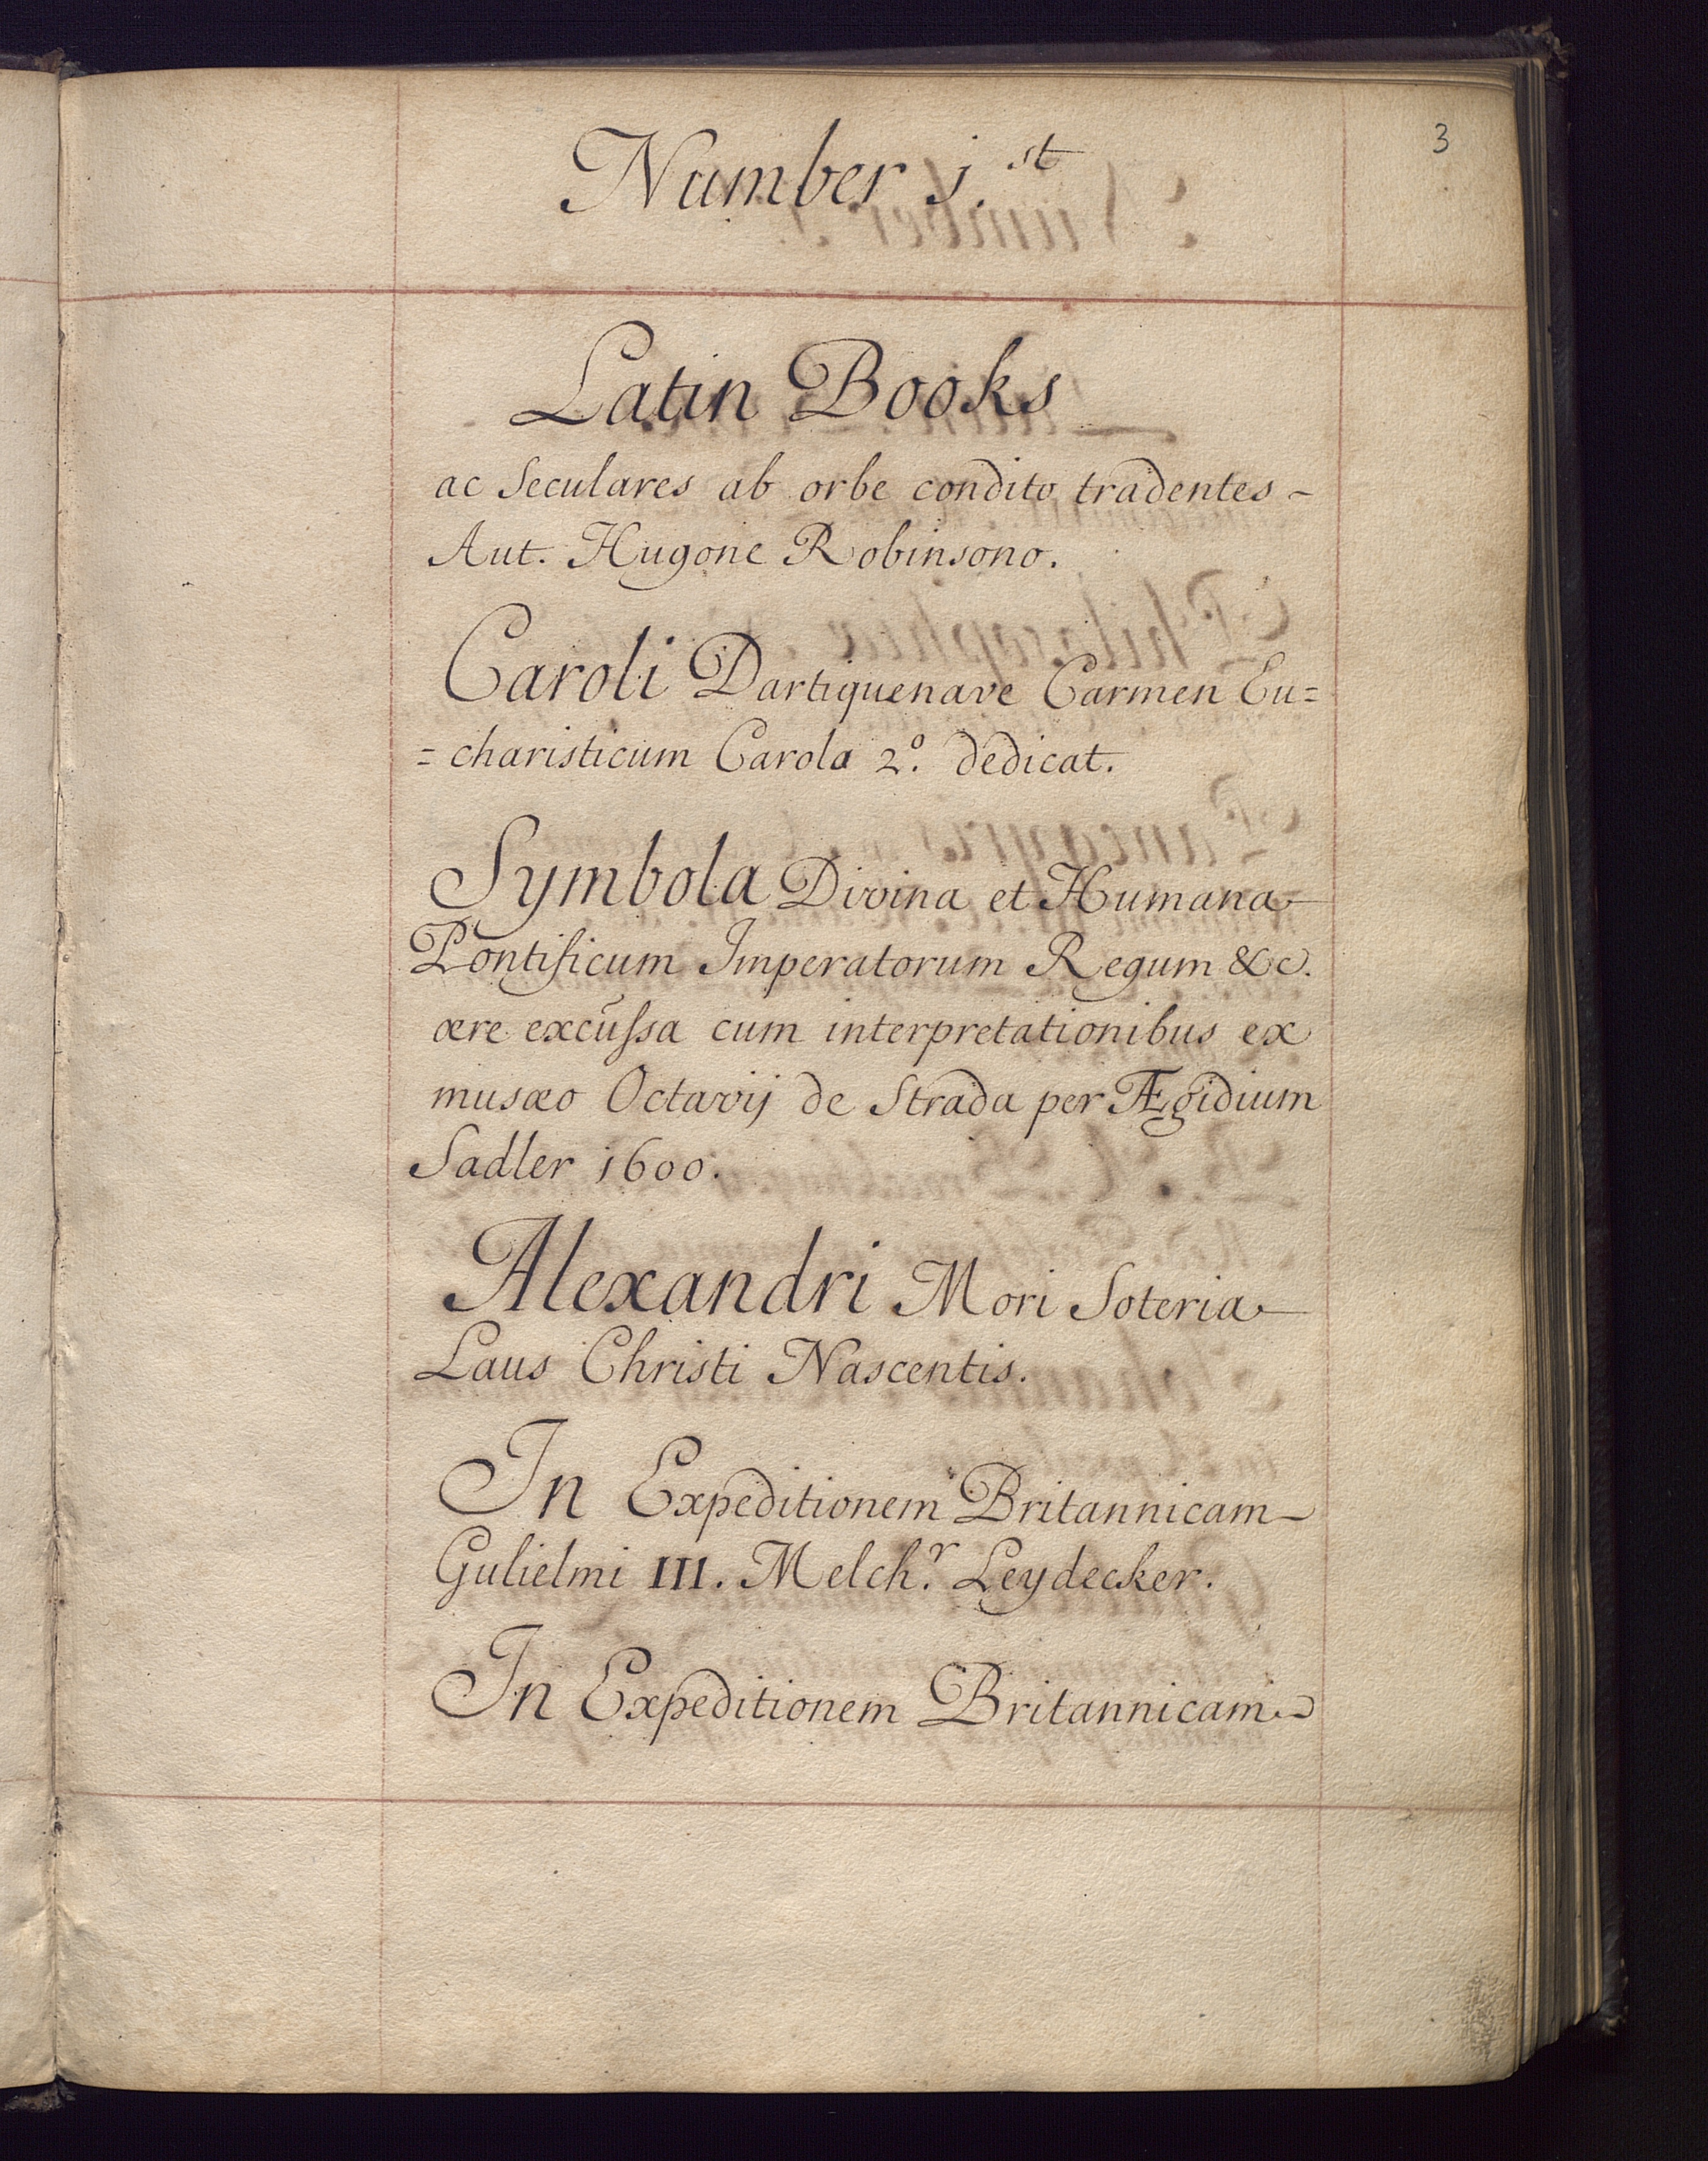 3
Number 1.st
Latin Books
ac Seculares ab orbe condito tradentes -
Aut. Hugone Robinsono.
Caroli Dartiquenave Carmen Eu=
=charisticum Carola 2.o dedicat.
Symbola Divina et Humana
Pontificum Imperatorum Regum &c.
ære excūssa cum interpretationibus ex
musæo Octavij de Strada per Ægidium
Sadler 1600.
Alexandri Mori Soteria
Laus Christi Nascentis.
In Expeditionem Britannicam
Gulielmi III. Melch.r Leydecker.
In Expeditionem Britannicam